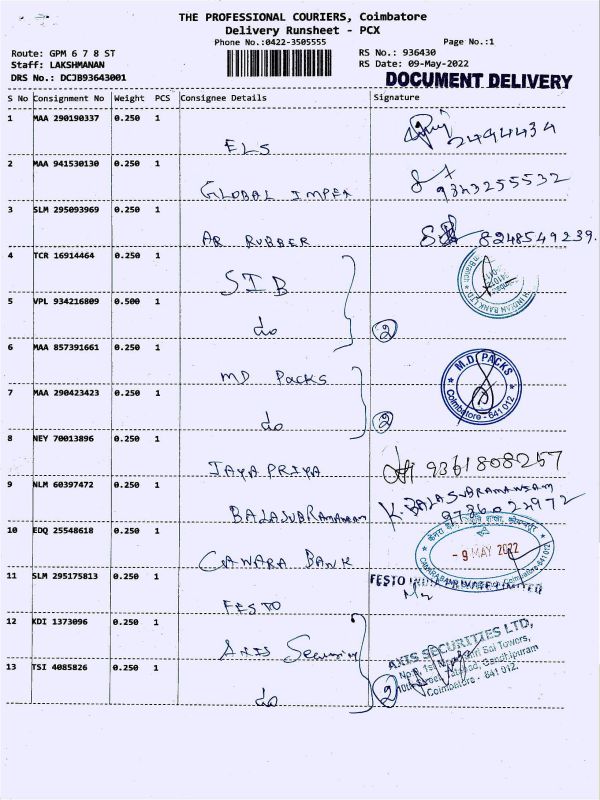 THE PROFESSIONAL COURIERS, Coimbatore
Delivery Runsheet - PCX
Phone No.:0422-3505555 Page No.:1
Route: GPM 6 7 8 ST RS No.: 936430
Staff: LAKSHMANAN RS Date: 09-May-2022
DRS No.: DCJB93643001 DOCUMENT DELIVERY
S No Consignment No Weight PCS Consignee Details Signature
1 MAA 290190337 0.250 1
ELS 2494434
2 MAA 941530130 0.250 1
GLOBAL IMPEX 9343255532
3 SLM 295093969 0.250 1
AR RUBBER 8248549239.
4 TCR 16914464 0.250 1
SIB INDIAN BANK LTD
5 VPL 934216809 0.500 1
do 2
6 MAA 857391661 0.250 1
MD Packs M.D PACKS
Coimbatore - 641 012
7 MAA 290423423 0.250 1
do 2
8 NEY 70013896 0.250 1
JAYAPRIYA 9361808257
9 NLM 60397472 0.250 1
BALASUBRAMANIAM K. BALASUBRAMANIAM
9786022972
10 EDQ 25548618 0.250 1
CANARA BANK - 9 MAY 2022
11 SLM 295175813 0.250 1
FESTO FESTO
12 KDI 1373096 0.250 1
AXIS Security AXIS SECURITIES LTD,
Sai Towers,
13 TSI 4085826 0.250 1
do 2 Gandhipuram
Coimbatore - 641 012.